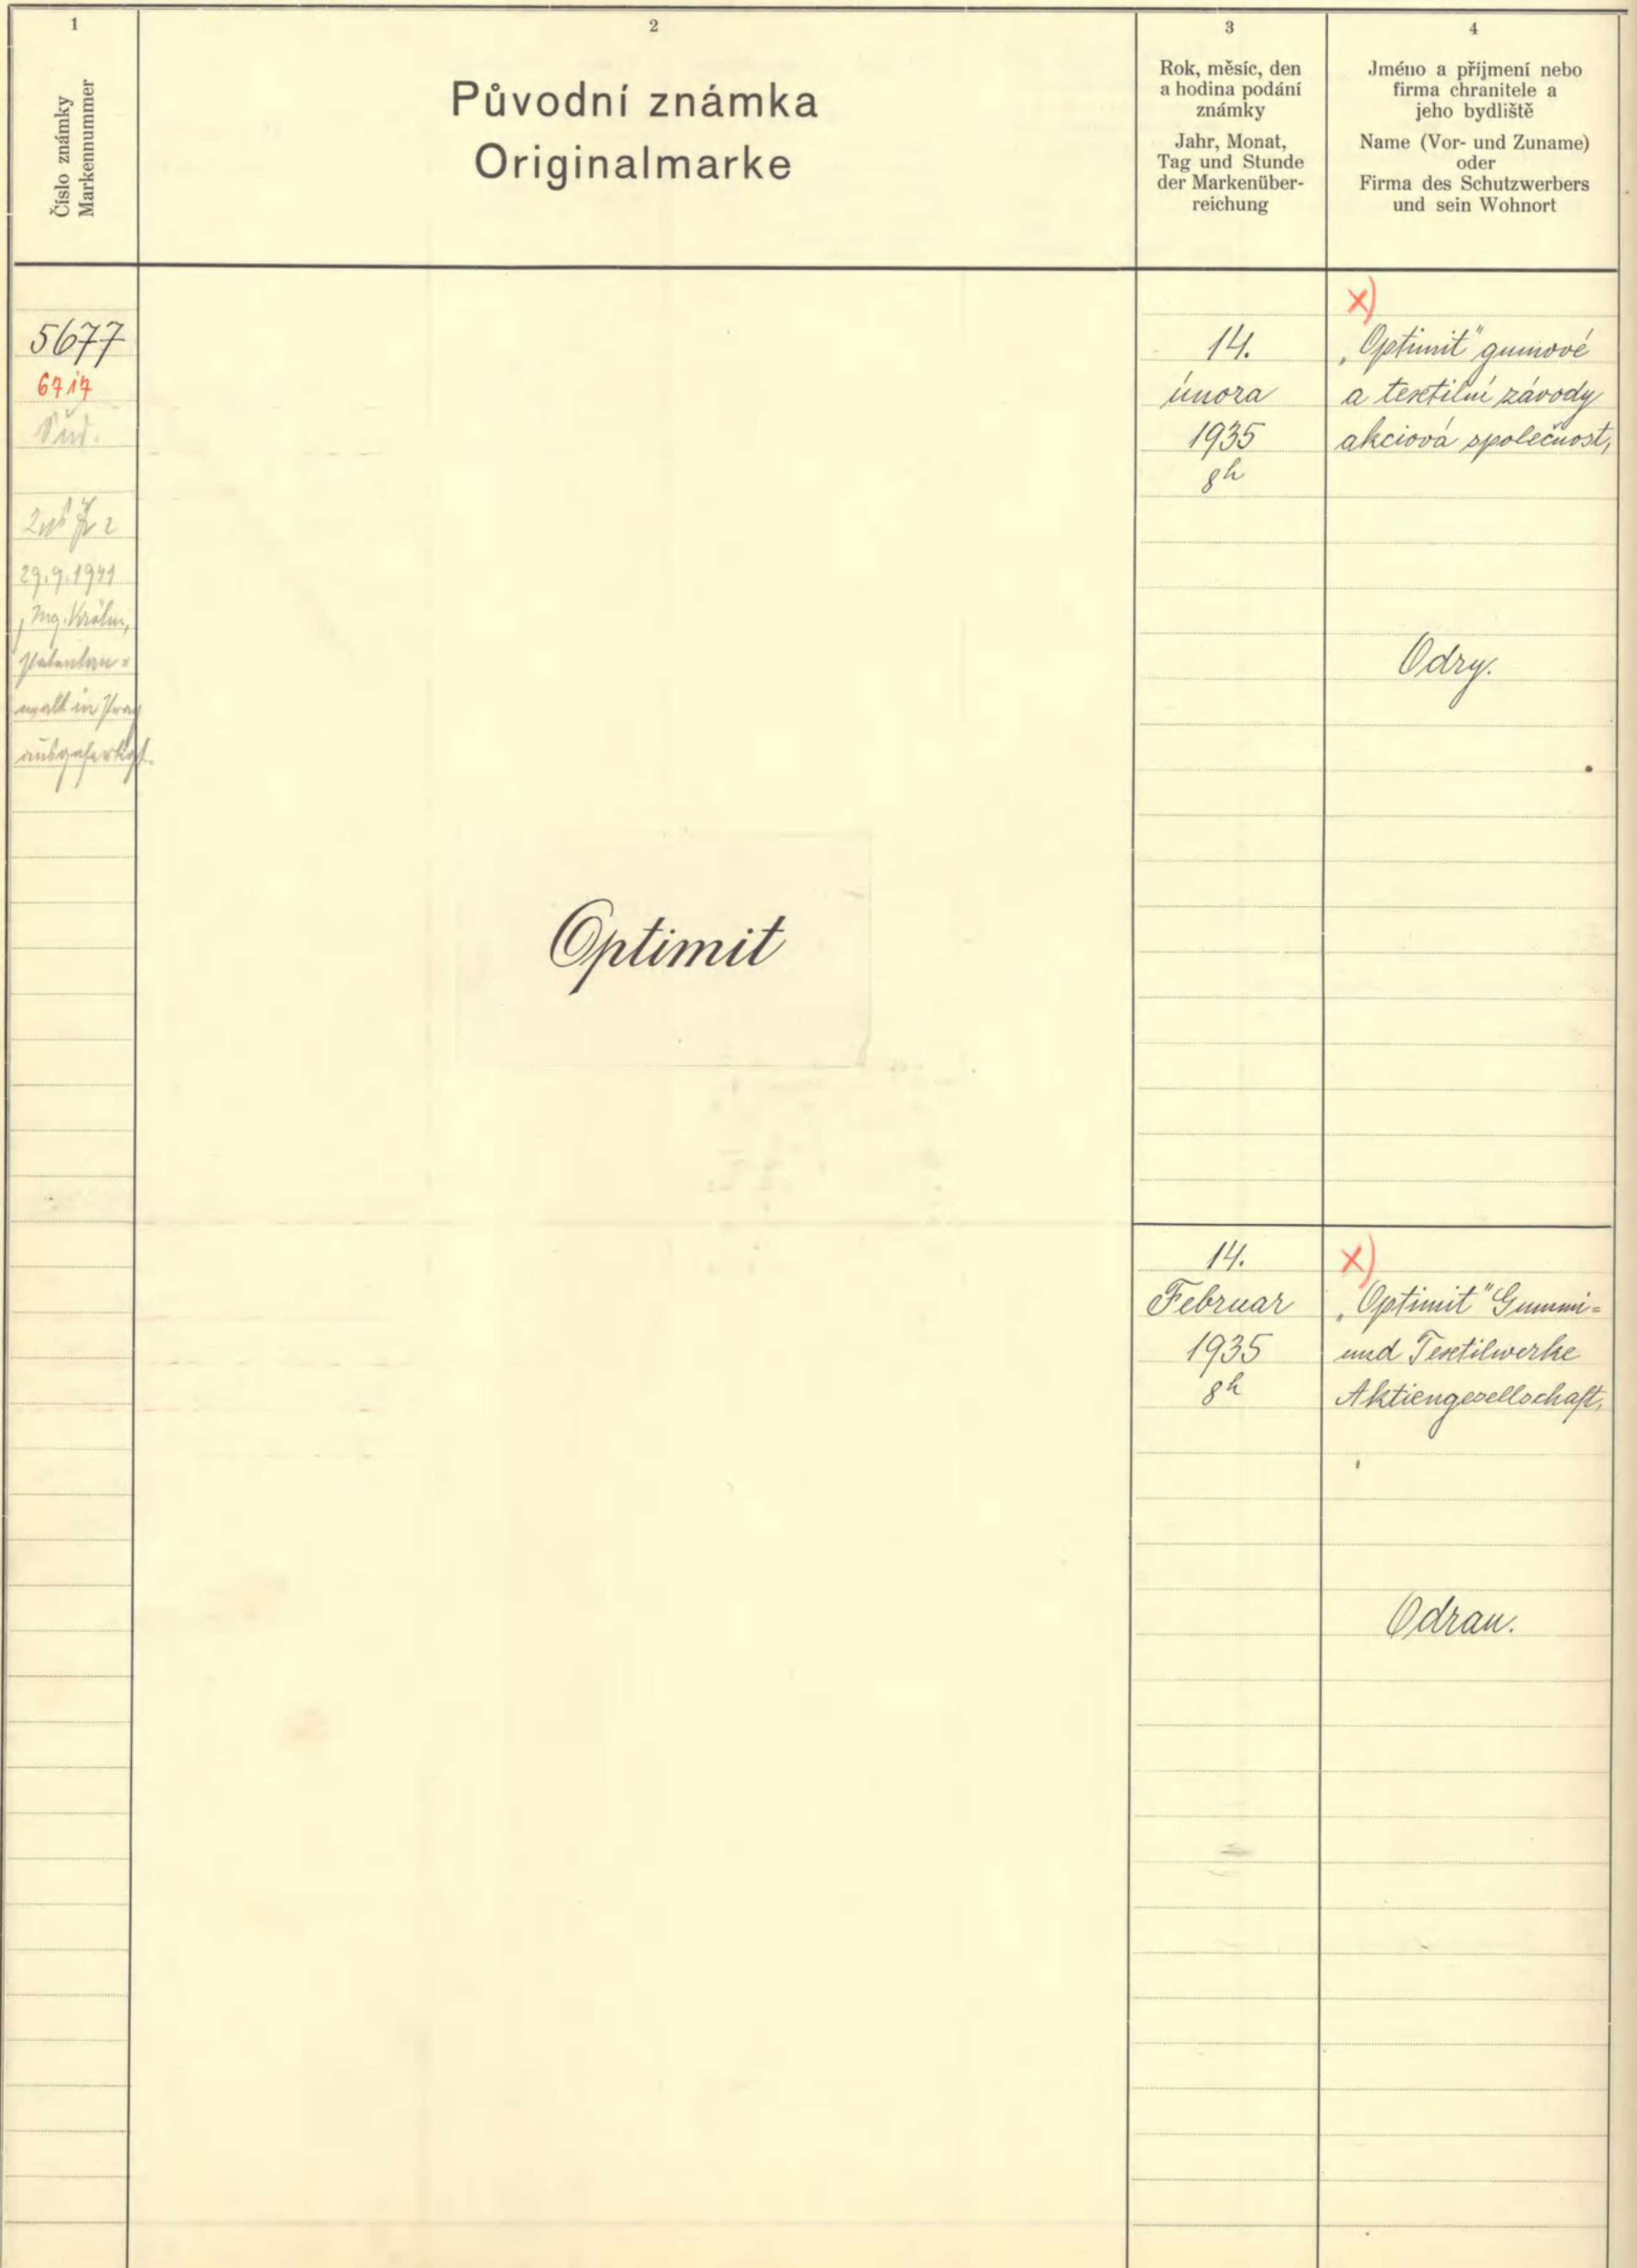 1
Číslo známky
Markennummer
2
Původní známka
Originalmarke
3
Rok, měsíc, den
a hodina podání
známky
Jahr, Monat,
Tag und Stunde
der Markenüber-
reichung
4
Jméno a příjmení nebo
firma chranitele a
jeho bydliště
Name (Vor- und Zuname)
oder
Firma des Schutzwerbers
und sein Wohnort
5677
6717
29.9.1941
Patentan=
walt in Prag
ausgefertigt.
Optimit
14.
února
1935
8h
x)
„Optimit" gumové
a textilní závody
akciová společnost,
Odry.
14.
Februar
1935
8h
x)
„Optimit" Gummi=
und Textilwerke
Aktiengesellschaft,
Odrau.